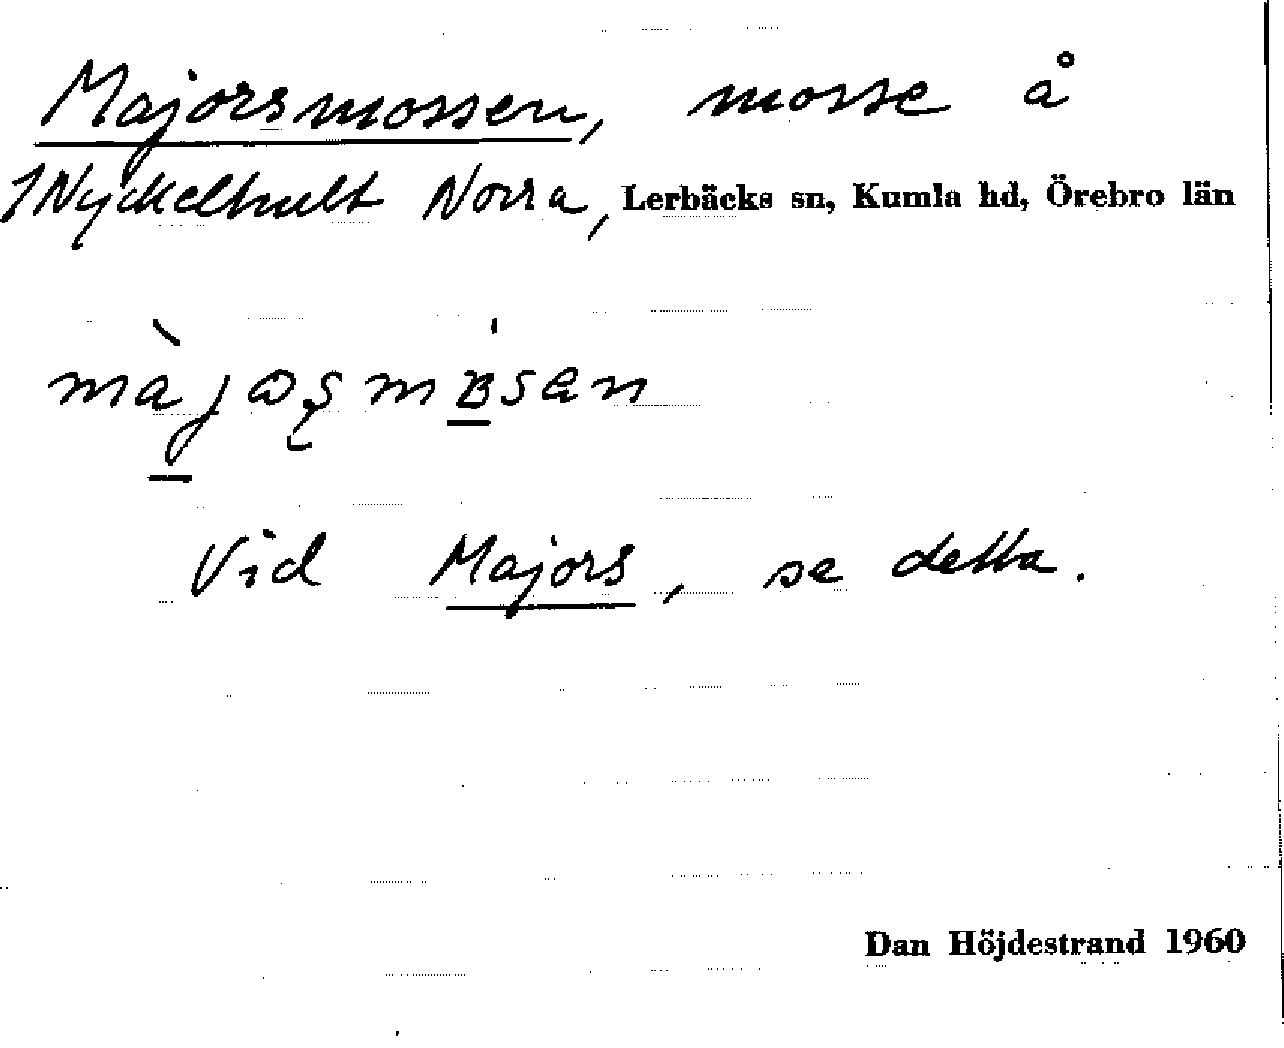 Majorsmossen, mosse å
1 Nyckelhult Norra, Lerbäcks sn, Kumla hd, Örebro län
Vid Majors, se detta.
Dan Höjdestrand 1960